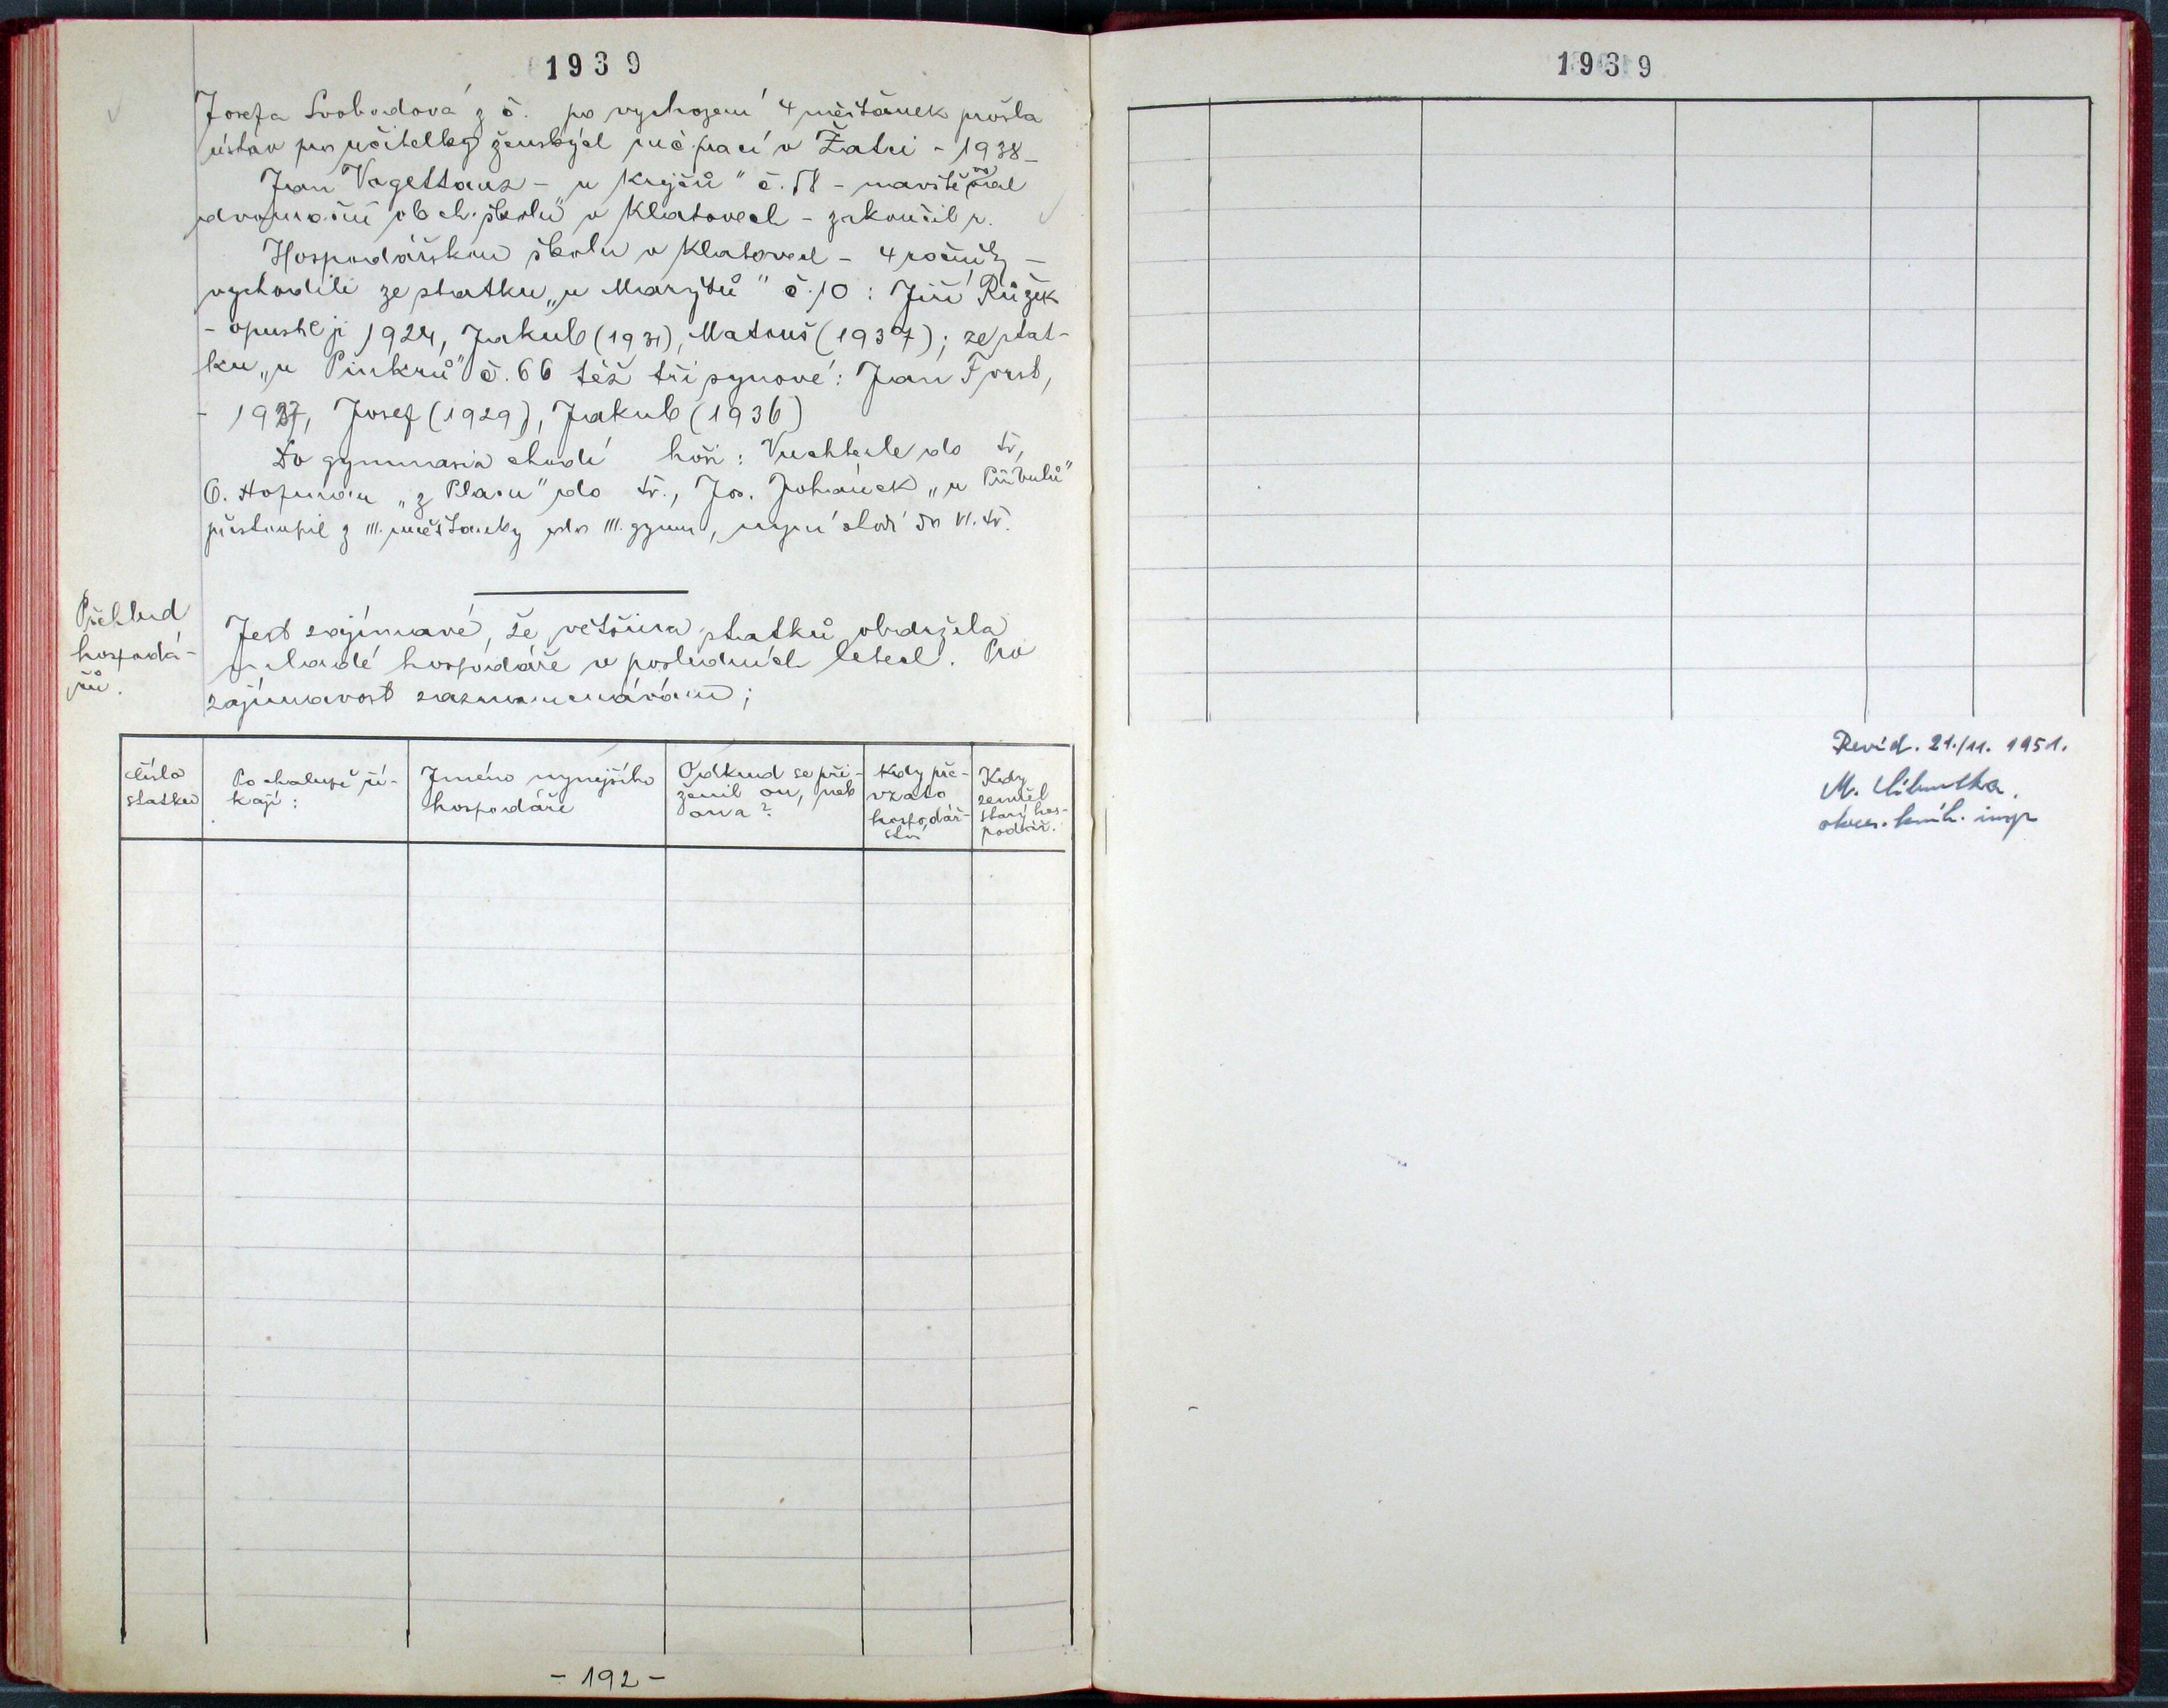 1939
Josefa Svobodová z č. po vychození 4 měšťanek prošla
ústav pro učitelky ženských ruč. prací v Žatci - 1938 -
Jan Vogeltanz - "u Krejčů" č. 58 - navštěvoval
dvouroční obch. školu v Klatovech - zakončil r.
Hospodářskou školu v Klatovech - 4 ročníky -
vychodili ze statku „u Marytů" č. 10: Jiří Růžek
- opustil ji 1924, Jakub (1931), Matouš (1937); ze stat-
ku „u Pinkrů" č. 66 též tři synové: Jan Forst,
- 1927, Josef (1929), Jakub (1936)
Do gymnasia chodí hoši: Vuchterle do tř.,
O. Hofman „z Placu" do tř., Jos. Johánek „u Přibulů"
přestoupil z III. měšťanky do III. gymn., nyní chodí do VI. tř.
Přehled
hospodá-
řů.
Jest zajímavé, že většina statků obdržela
mladé hospodáře v posledních letech. Pro
zajímavost zaznamenávám;
číslo
statku
Po chalupě ří-
kají:
Jméno nynějšího
hospodáře
Odkud se při-
ženil on, neb
ona?
Kdy pře-
vzato
hospodář-
ství
Kdy
zemřel
starý hos-
podář.
- 192 -
1939
Revid. 21./11. 1951.
M.
okres. knih. insp